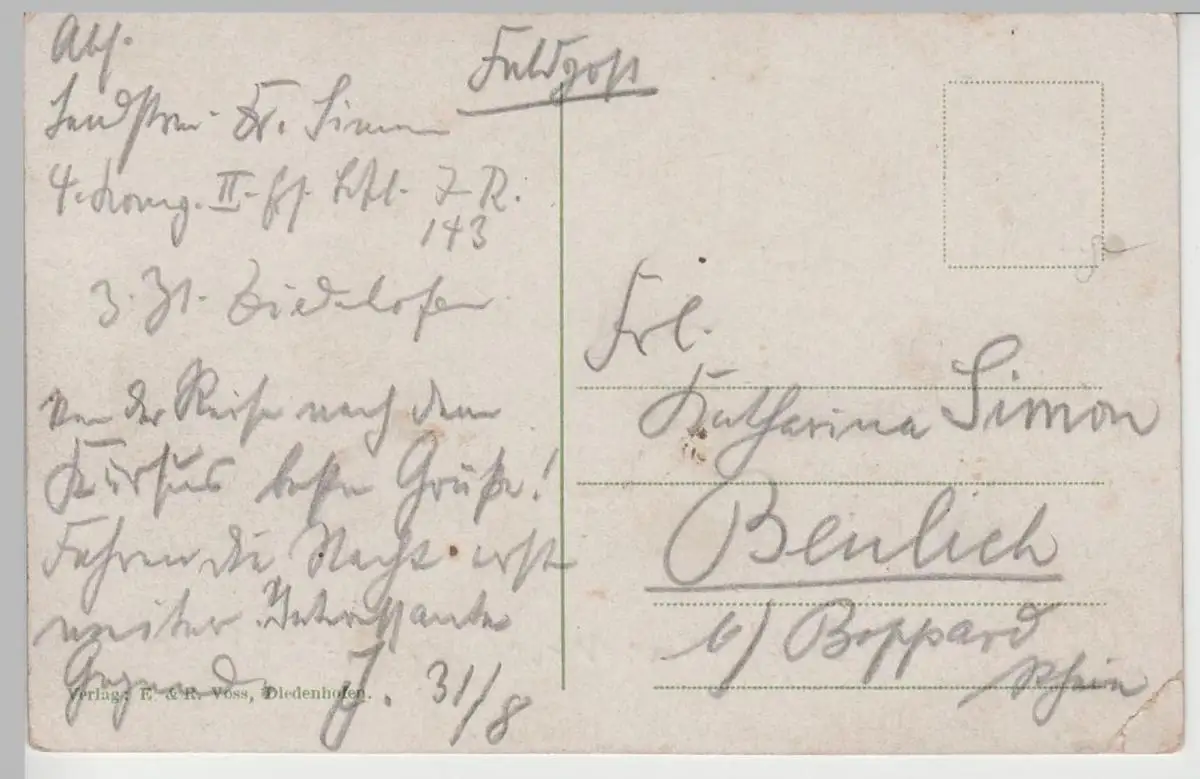 Abs.
Feldpost
Landstrm. Fr. Simon
4. Komp. II. Ers. Btl. I. R.
143
z. Zt. Diedenhofen
Von der Reise nach dem
Kursus beste Grüße!
Fahren die Nacht erst
weiter. Interessante
Gegend. J. 31/8
Verlag: E. & R. Voss, Diedenhofen.
Frl.
Katharina Simon
Beulich
b/ Boppard
Rhein